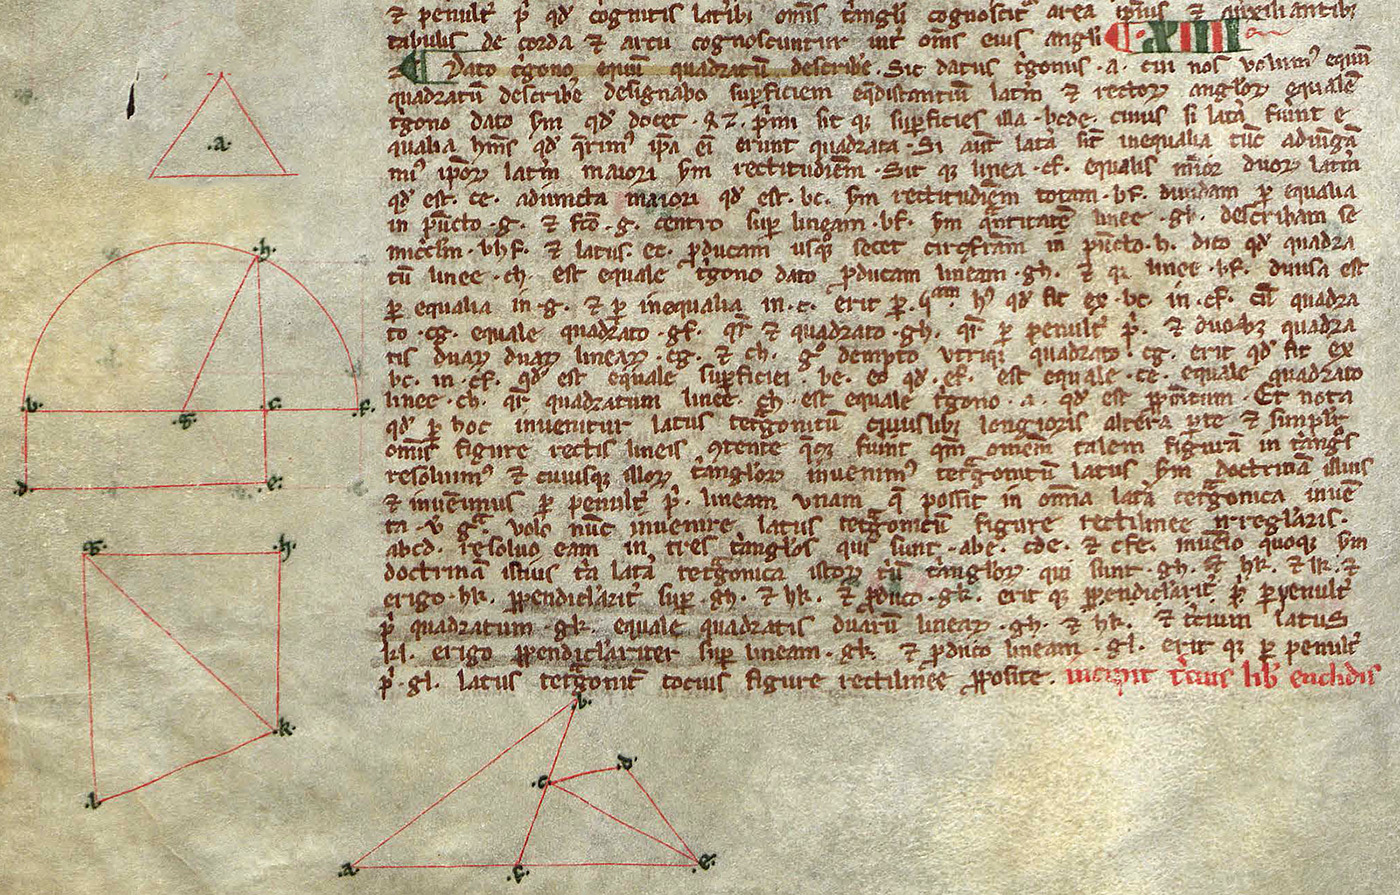 & penult' p' qd' cognitis latib' om̄is t'angli cognoscit' area ip̄ius & auxiliantib'
tabulis de corda & arcu cognoscuntur int' om̄s eius angli XIIII
Dato t'gono equū quadratū describe. Sit datus t'gonus .a. cui nos volum' equū
quadratū describe designabo sup̄ficiem eqdistantiū lat'm & rectoꝝ angloꝝ equalē
t'gono dato s̄m qd' docet .42. p̄mi sit qꝫ sup̄ficies illa .bcde. cuius si lat'a fiunt e
qualia hm̄s qd' q̄rim' ip̄a ei erunt quadrata. Si aūt lat'a sūt inequalia tūc adiūgā
mi' ip̄oꝝ lat'm maiori s̄m rectitudiēm. Sit qꝫ linea .cf. equalis mior duoꝝ lat'm
qd' est .ce. adiuncta maiori qd' est .bc. s̄m rectitudiēm totam .bf. diuidam p̲ equalia
in pūcto .g. & fc̄o .g. centro sup̲ lineam .bf. s̄m q̄ntitatē linee .gb. describam se
micc'lm .bhf. & latus .ec. p̲ducam usqꝫ secet circūfr̄am in pūcto .h. dico qd' quadra
tū linee .ch. est equale t'gono dato p̲ducam lineam .gh. & qꝫ linee .bf. diuisa est
p̲ equalia in .g. & p̲ inequalia in .c. erit p̲ .q̄m h' qd' fit ex .bc. in .cf. cū quadra
to .cg. equale quadrato .gf. q̄r & quadrato .gh. q̄r p̲ penult' p'. & duobꝫ quadra
tis duaꝝ duaꝝ lineaꝝ .cg. & ch. g° dempto utriqꝫ quadrato .cg. erit qd' fit ex
bc. in .cf. qd' est equale sup̄ficiei .be. eo qd' .cf. est equale .ce. equale quadrato
linee .ch. q̄r quadratum linee .ch. est equale t'gono .a. qd' est p̲pōitum. Et nota
qd' p̲ hoc inuenitur latus tet'gonicū cuiuslib' longioris altera p̲te & simpl'r
om̄is figure rectis lineis 9tente q̄cqꝫ fiūit q̄m om̄em talem figurā in t'ang'los
resoluim' & cuiusqꝫ illoꝝ t'angloꝝ inuenim' tet'gonicū latus s̄m doctrinā illius
& inuenimus p̲ penult' p'. lineam unam q̄ possit in om̄ia lat'a tet'gonica inuē
ta. v' g'a volo nūc inuenire latus tet'gonicū figure rectilinee irreglaris.
abcd. resoluo eam in tres t'anglos qui sunt .abc. cde. & cfe. inuēio quoqꝫ s̄m
doctrinā istius t'a lat'a tet'gonica istoꝝ t'ū t'angloꝝ qui sunt .gh. & hk. & lk. &
erigo .hk. p̲pendiclarit' sup̲ .gh. & hk. & p̲duco .gk. erit qꝫ p̲pendiclarit' p' p̲ penult'
p' quadratum .gk. equale quadratis duarū lineaꝝ .gh. & hk. & t'cium latus
kl. erigo p̲pendiclariter sup̲ lineam .gk. & p̲duco lineam .gl. erit qꝫ p̲ penult'
p' .gl. latus tet'gonic' tocius figure rectilinee p̲posite. incipit t'cius lib' euclidis
.a.
.h.
.b.
.g.
.c.
.f.
.d.
.e.
.g.
.h.
.k.
.l.
.b.
.c.
.d.
.a.
.f.
.e.